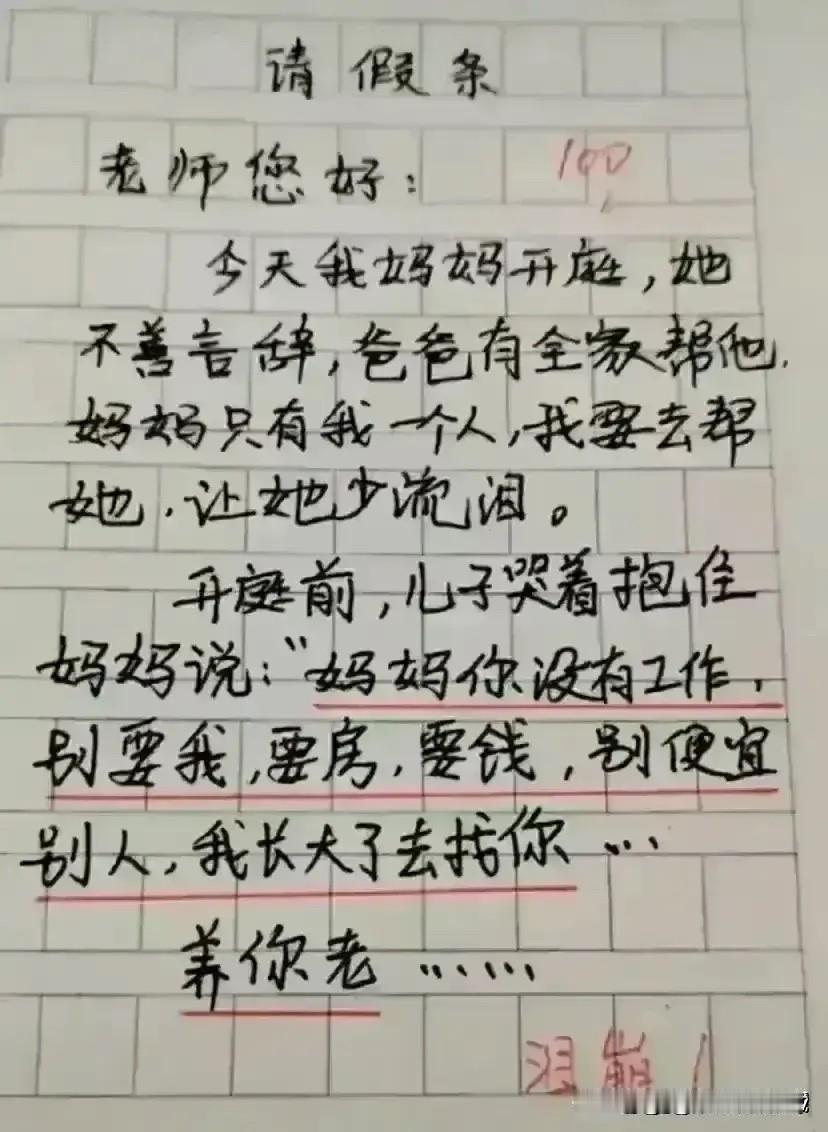 请假条
老师您好：
100
今天我妈妈开庭，她
不善言辞，爸爸有全家帮他，
妈妈只有我一个人，我要去帮
她，让她少流泪。
开庭前，儿子哭着抱住
妈妈说：“妈妈你没有工作，
别要我，要房，要钱，别便宜
别人，我长大了去括你……
养你老……
泪崩！